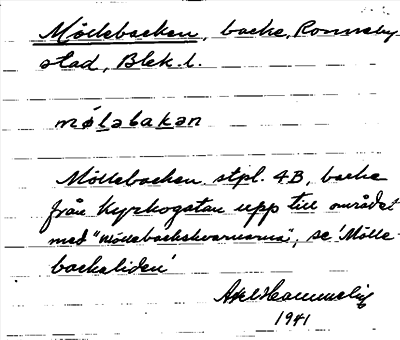 Möllebacken, backe, Ronneby
stad, Blek. l.
møləbakən
Möllebacken. stpl. 4B, backe
från Kyrkogatan upp till området
med "Möllebackskvarnarna", se 'Mölle-
backaliden'
Axel Hammelig
1941